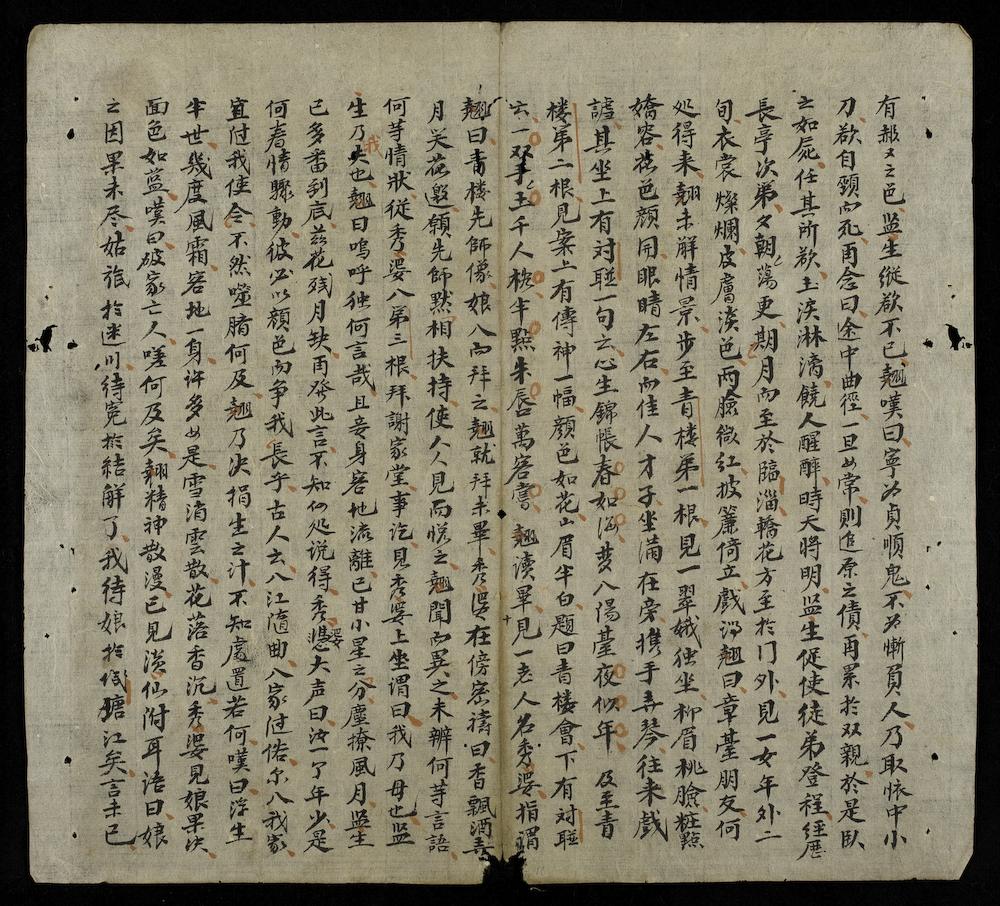 有赧忸之色監生縱欲不已翹嘆曰寧为貞順鬼不为慚負人乃取怀中小
刀欲自頸而死再念曰途中曲徑一旦如常則追原之債再累於双親於是臥
之如屍任其所欲玉淚淋漓饒人醒醉時天將明監生促使徒弟登程經歷
長亭次第夕朝蕩更期月而至於臨淄轎花方至於门外見一女年外二
旬衣裳燦爛皮膚淡色两臉微红披簾倚立戲谓翹曰章臺朋友何
处得来翹未解情景步至青楼第一根見一翠娥独坐柳眉桃臉粧點
嬌容花色顔開眼睛左右而佳人才子坐滿在旁携手弄琴往来戲
謔其坐上有对联一句云心生錦帳春如海夢入陽臺夜似年及至青
楼第二根見案上有傳神一幅顔色如花眉半白題曰青楼會下有对联
云一双手玉千人枕半點朱唇萬客嘗翹讀畢見一老人名秀婆指謂
翹曰青楼先師像娘入而拜之翹就拜未畢秀婆在傍密禱曰香飄酒弄
月关花邀願先師默相扶持使人人見而悦之翹聞而異之未辨何等言語
何等情狀從秀婆入第三根拜謝家堂事訖見秀婆上坐谓曰我乃母也監
生乃我夫也翹曰嗚呼独何言哉且妾身客地流離已甘小星之分塵撩風月監生
已多番刮底兹花残月缺再發此言不知何处说得秀婆大声曰汝一了年少是
何春情驟動彼必以顔色而争我長乎古人云入江隨曲入家过俗尔入我家
宜过我使令不然噬臍何及翹乃决捐生之計不知處置若何嘆曰浮生
半世幾度風霜客地一身许多如是雪消雲散花落香沉秀婆見娘果决
面色如藍嘆曰破家亡人嗟何及矣翹精神散漫已見淡仙附耳语曰娘
之因果未尽姑旅於迷川待完於结解了我待娘於钱塘江矣言未已